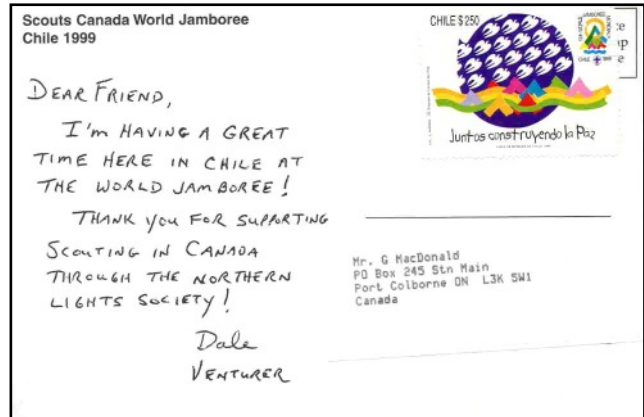 Scouts Canada World Jamboree
Chile 1999
DEAR FRIEND,
I'm HAVING A GREAT
TIME HERE IN CHILE AT
THE WORLD JAMBOREE!
THANK you FOR SUPPORTING
SCOUTING IN CANADA
THROUGH THE NORTHERN
LIGHTS SOCIETY!
Dale
VENTURER
CHILE $250
CHILE 1999
Juntos construyendo la Paz
Mr. G MacDonald
PO Box 245 Stn Main
Port Colborne ON L3K 5W1
Canada